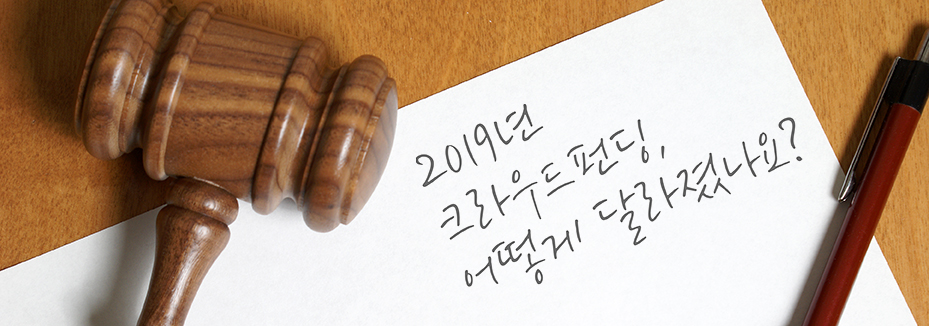 2019년
크라우드펀딩,
어떻게 달라졌나요?